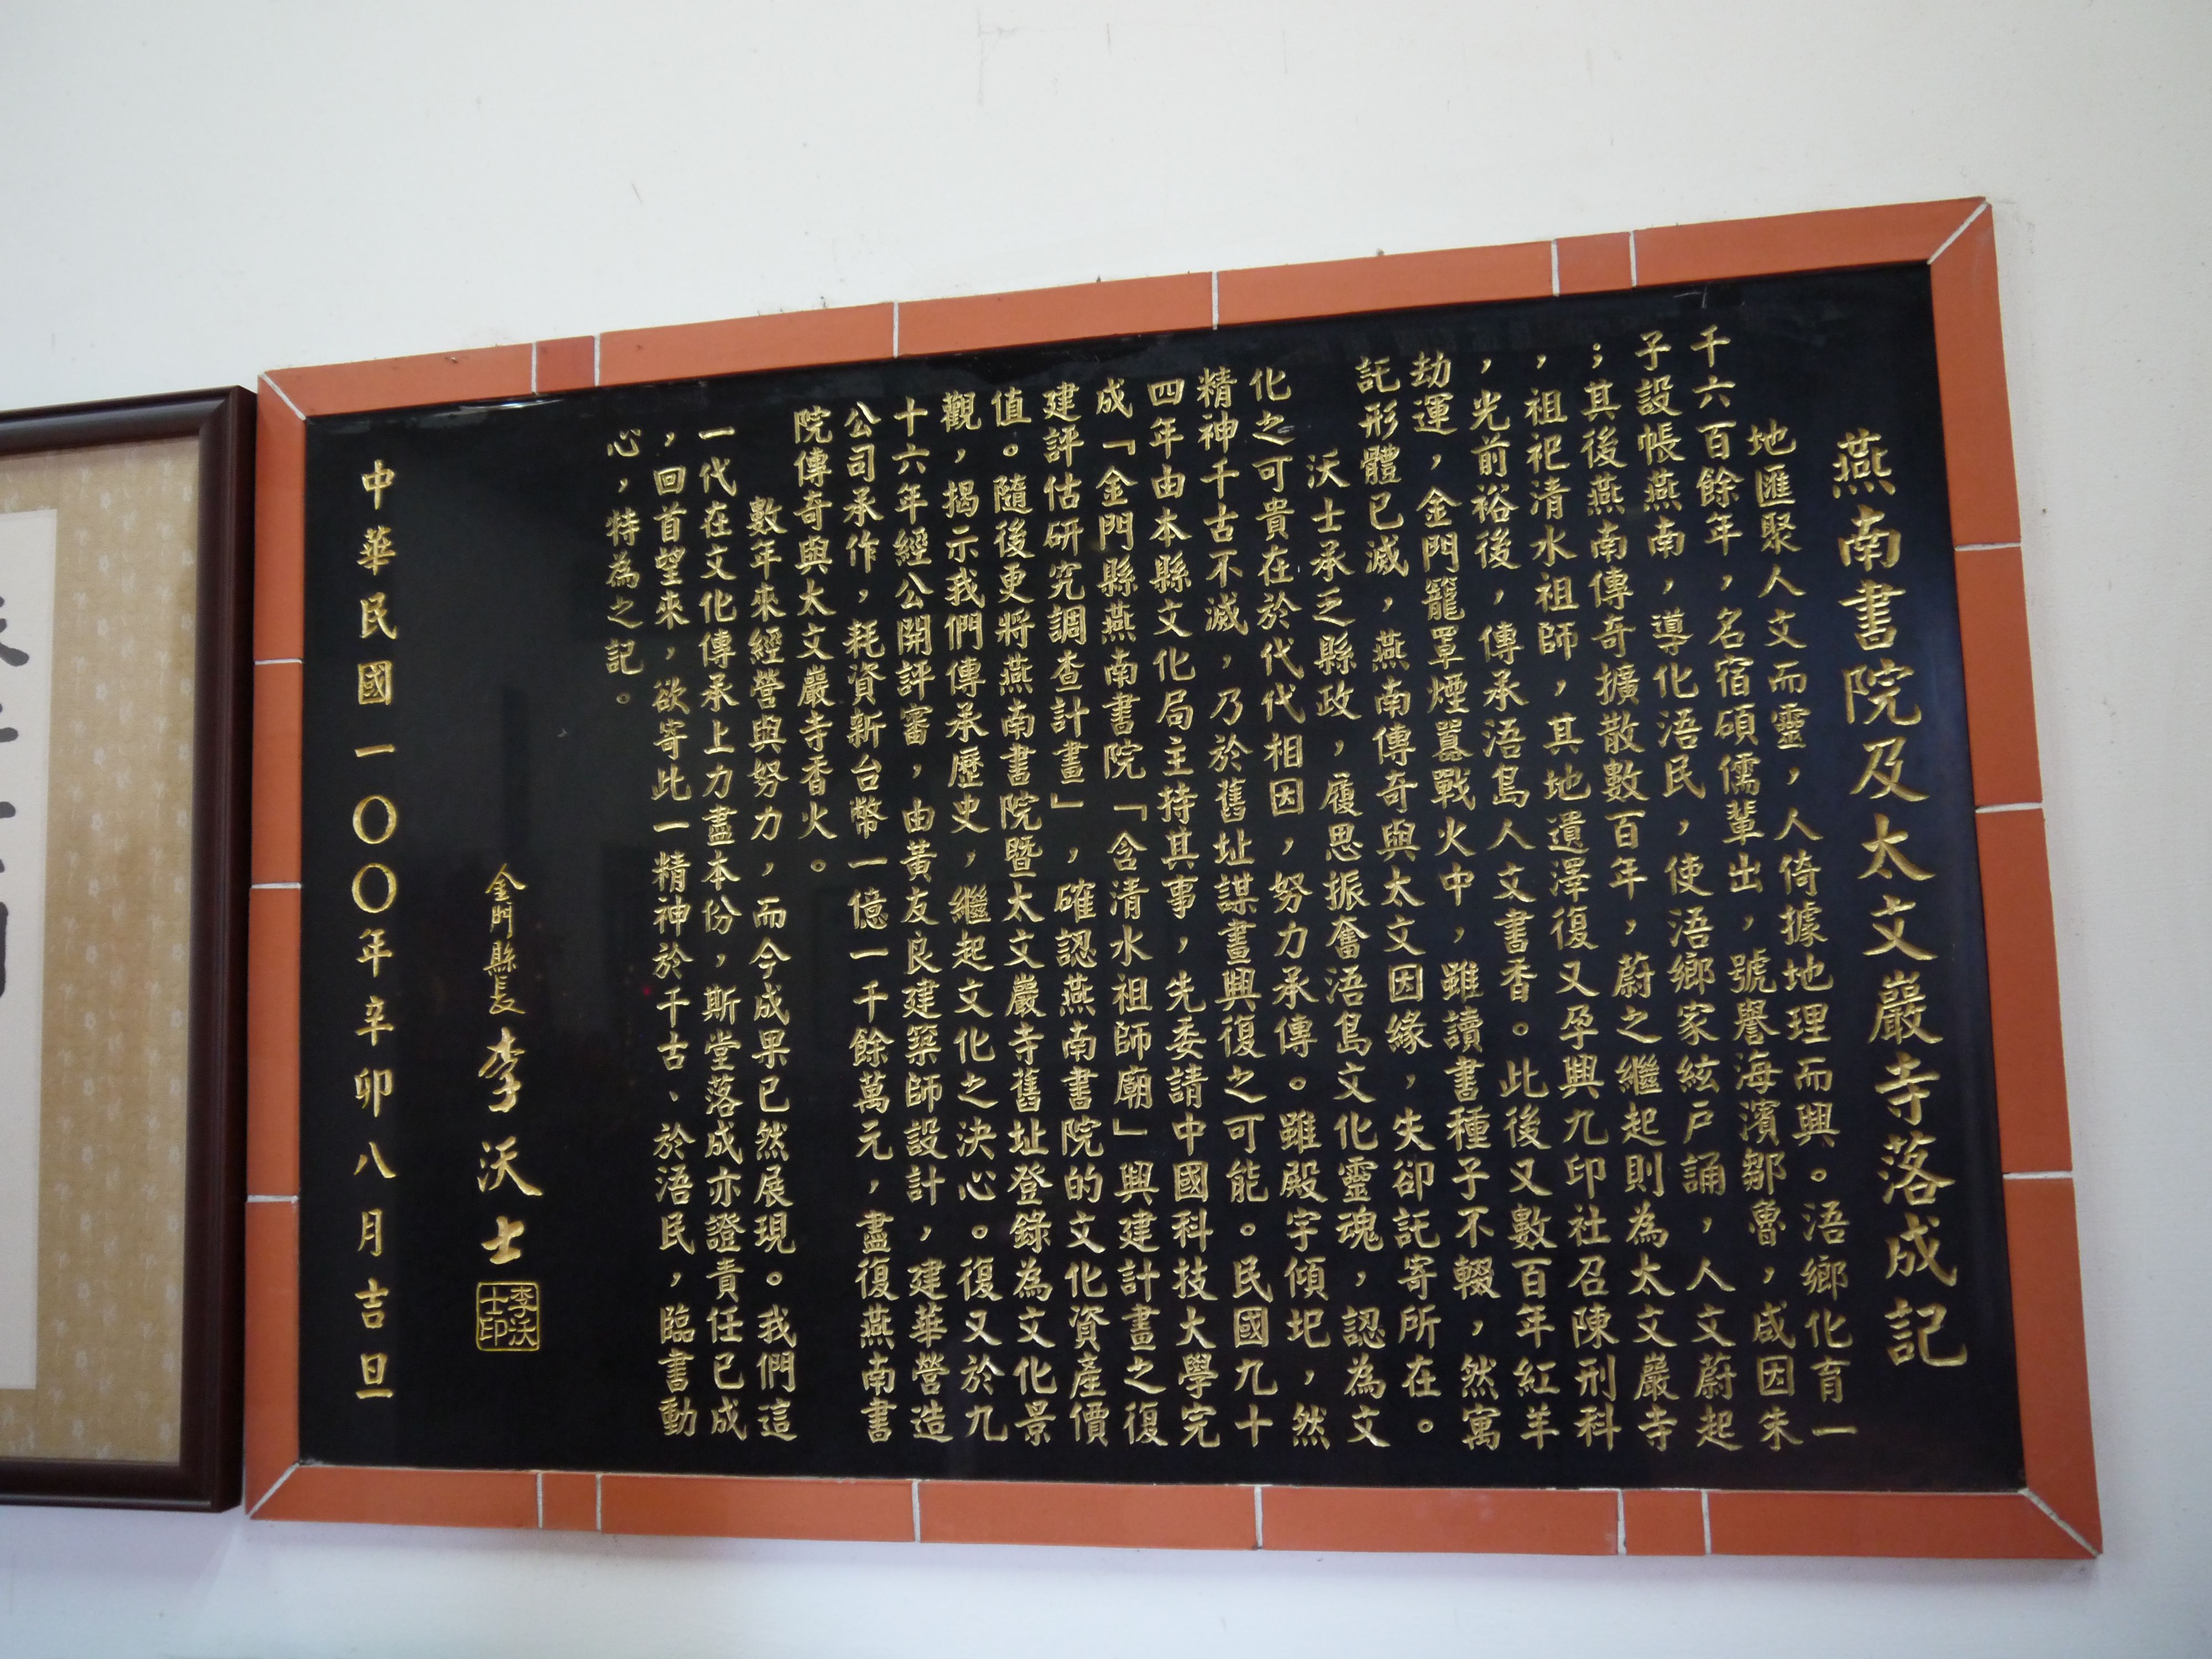 燕南書院及太文巖寺落成記
地匯聚人文而靈，人倚據地理而興。浯鄉化育一
千六百餘年，名宿碩儒輩出，號譽海濱鄒魯，咸因朱
子設帳燕南，導化浯民，使浯鄉家絃戶誦，人文蔚起
；其後燕南傳奇擴散數百年，蔚之繼起則為太文巖寺
，祖祀清水祖師，其地遺澤復又孕興九印社召陳刑科
，光前裕後，傳承浯島人文書香。此後又數百年紅羊
劫運，金門籠罩煙囂戰火中，雖讀書種子不輟，然寓
託形體已滅，燕南傳奇與太文因緣，失卻託寄所在。
沃士承乏縣政，履思振奮浯島文化靈魂，認為文
化之可貴在於代代相因，努力承傳。雖殿宇傾圯，然
精神千古不滅，乃於舊址謀畫興復之可能。民國九十
四年由本縣文化局主持其事，先委請中國科技大學完
成「金門縣燕南書院「含清水祖師廟」興建計畫之復
建評估研究調查計畫」，確認燕南書院的文化資產價
值。隨後更將燕南書院暨太文巖寺舊址登錄為文化景
觀，揭示我們傳承歷史，繼起文化之決心。復又於九
十六年經公開評審，由黃友良建築師設計，建華營造
公司承作，耗資新台幣一億一千餘萬元，盡復燕南書
院傳奇與太文巖寺香火。
數年來經營與努力，而今成果已然展現。我們這
一代在文化傳承上力盡本份，斯堂落成亦證責任已成
，回首望來，欲寄此一精神於千古、於浯民，臨書動
心，特為之記。
金門縣長 李沃士
李沃士印
中華民國一〇〇年辛卯八月吉旦